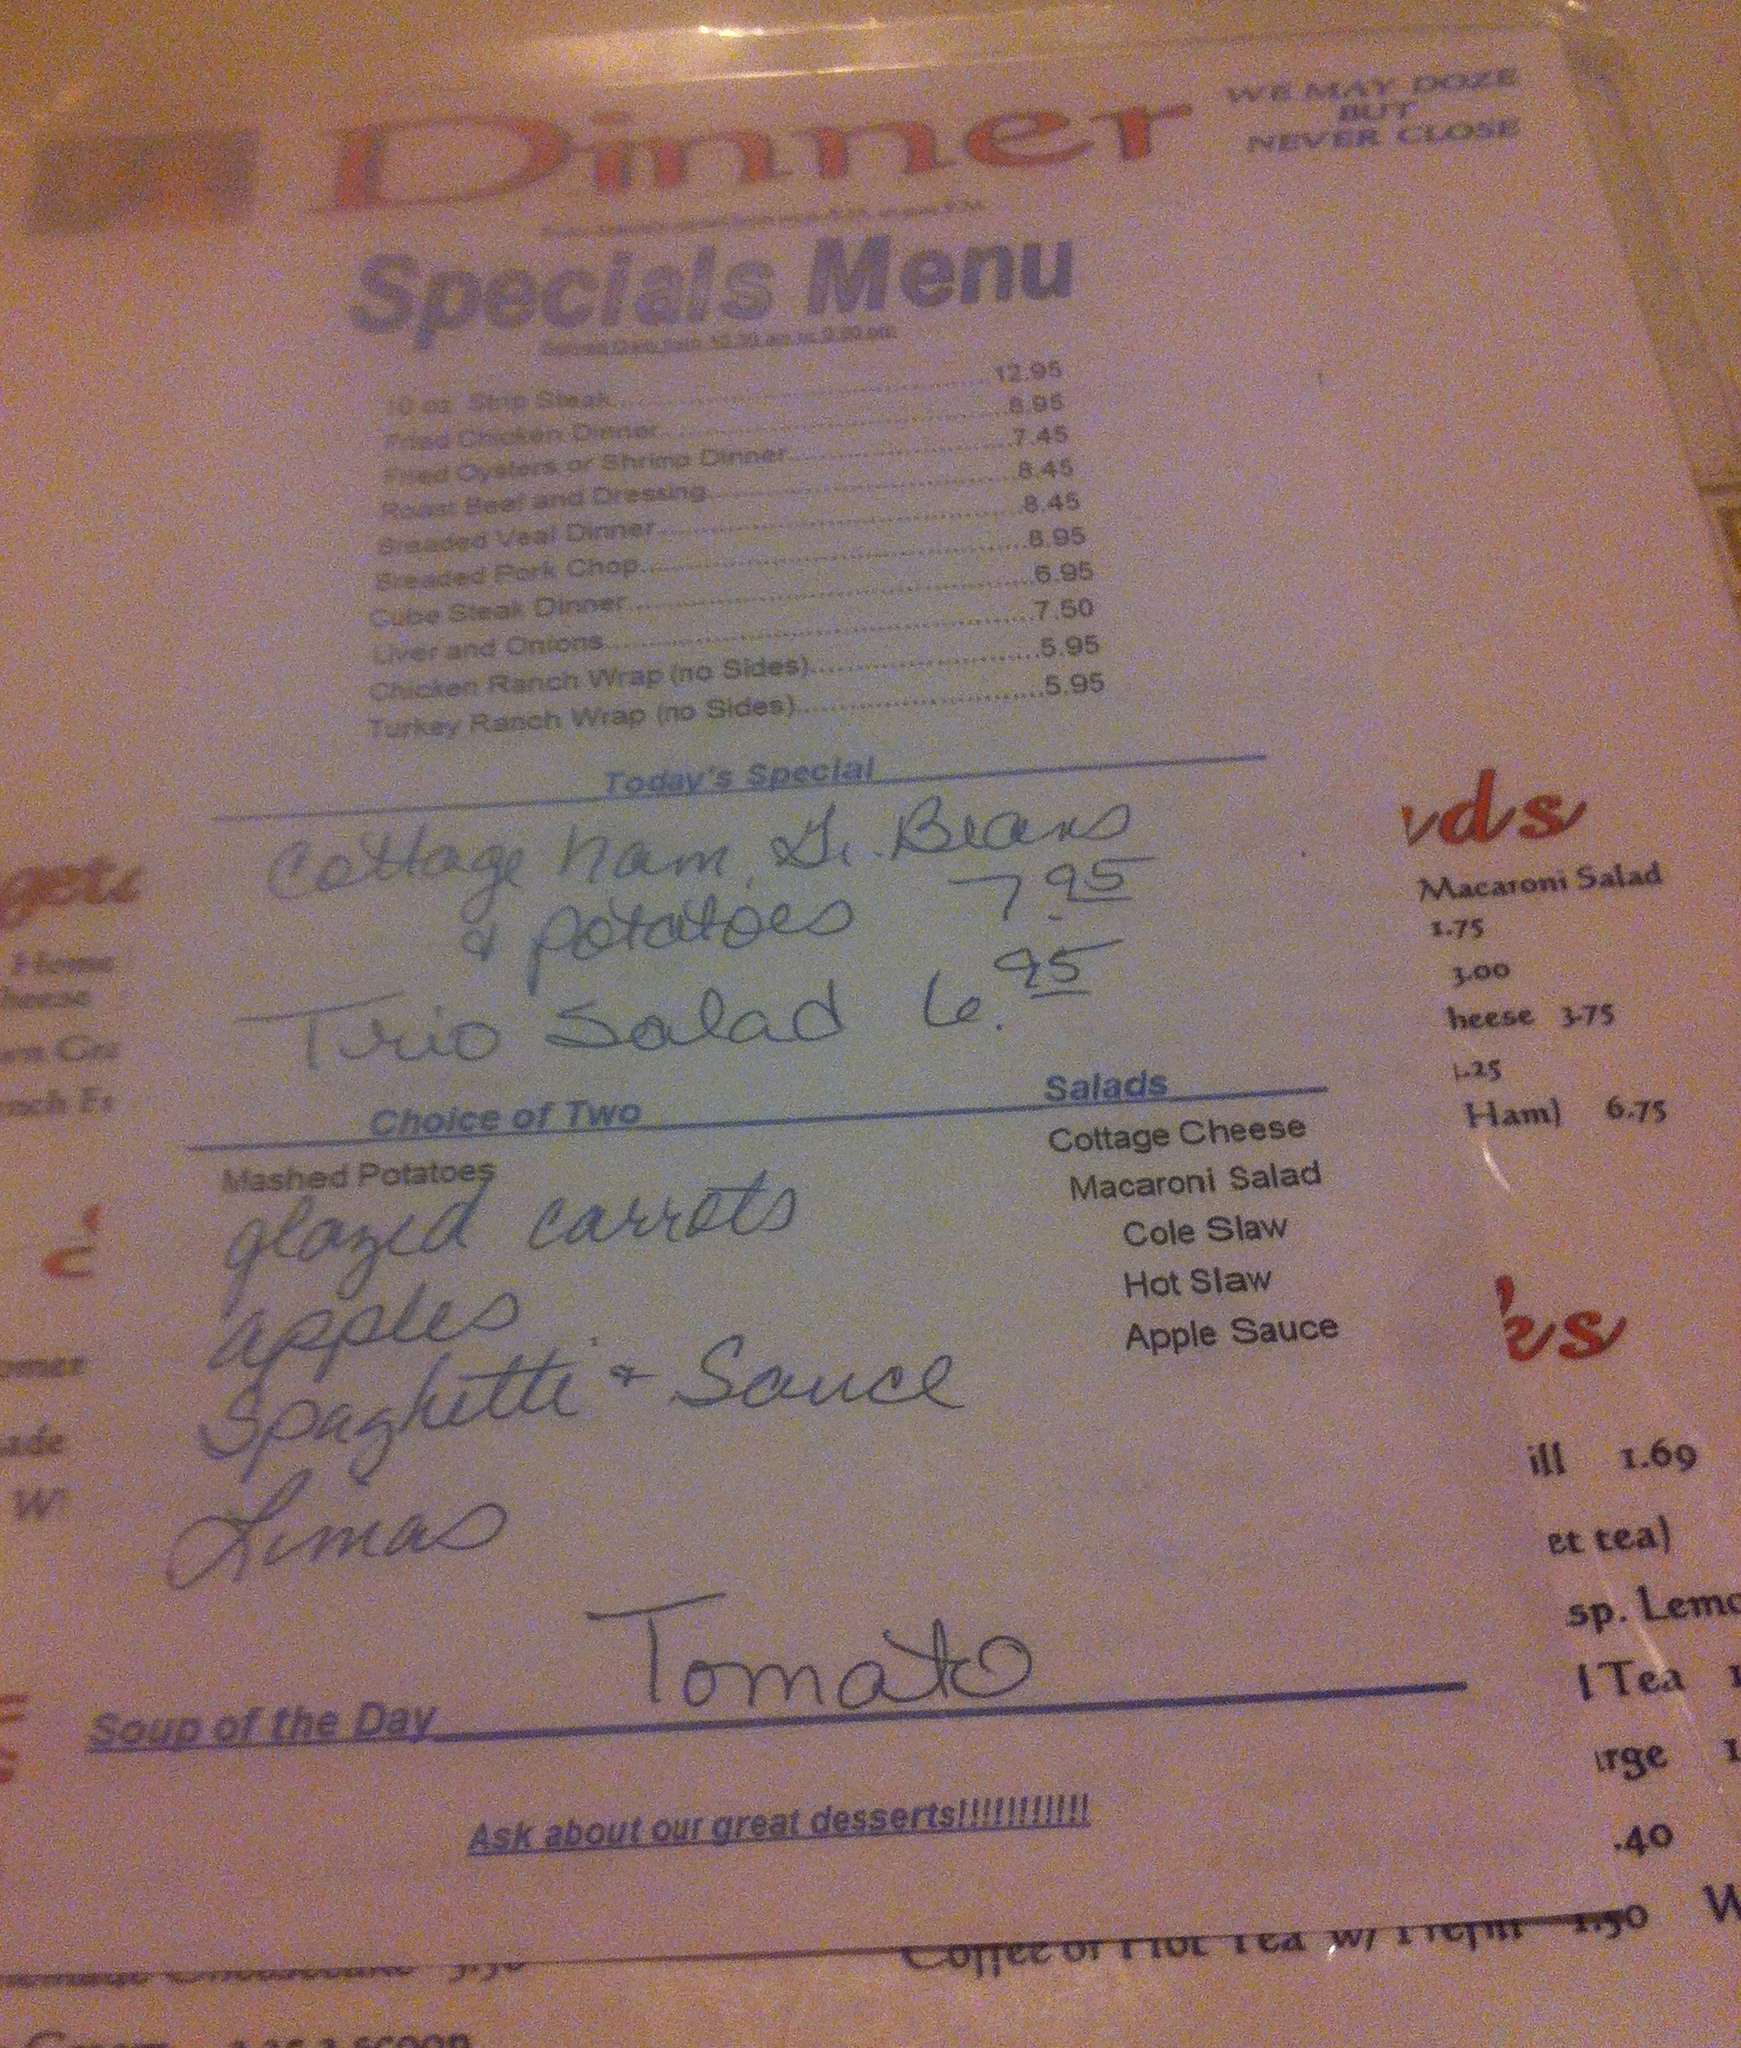 Dinner
WE MAY DOZE
BUT
NEVER CLOSE
Specials Menu
10 oz. Strip Steak 12.95
Fried Chicken Dinner 8.95
Fried Oysters or Shrimp Dinner 7.45
Roast Beef and Dressing 8.45
Breaded Veal Dinner 8.45
Breaded Pork Chop 8.95
Cube Steak Dinner 6.95
Liver and Onions 7.50
Chicken Ranch Wrap (no Sides) 5.95
Turkey Ranch Wrap (no Sides) 5.95
Today's Special
Cottage ham, Gr. Beans
& potatoes 7.95
Trio Salad 6.95
Choice of Two
Mashed Potatoes
glazed carrots
apples
Spaghetti & Sauce
Limas
Salads
Cottage Cheese
Macaroni Salad
Cole Slaw
Hot Slaw
Apple Sauce
Soup of the Day Tomato
Ask about our great desserts!!!!!!!!!!!
Home
heese
W
ds
Macaroni Salad
1.75
3.00
heese 3.75
Ham) 6.75
ill 1.69
et tea)
sp. Lemo
Tea
.40
Coffee or Hot Tea w/ 1 refill 1.50 W
a scoop